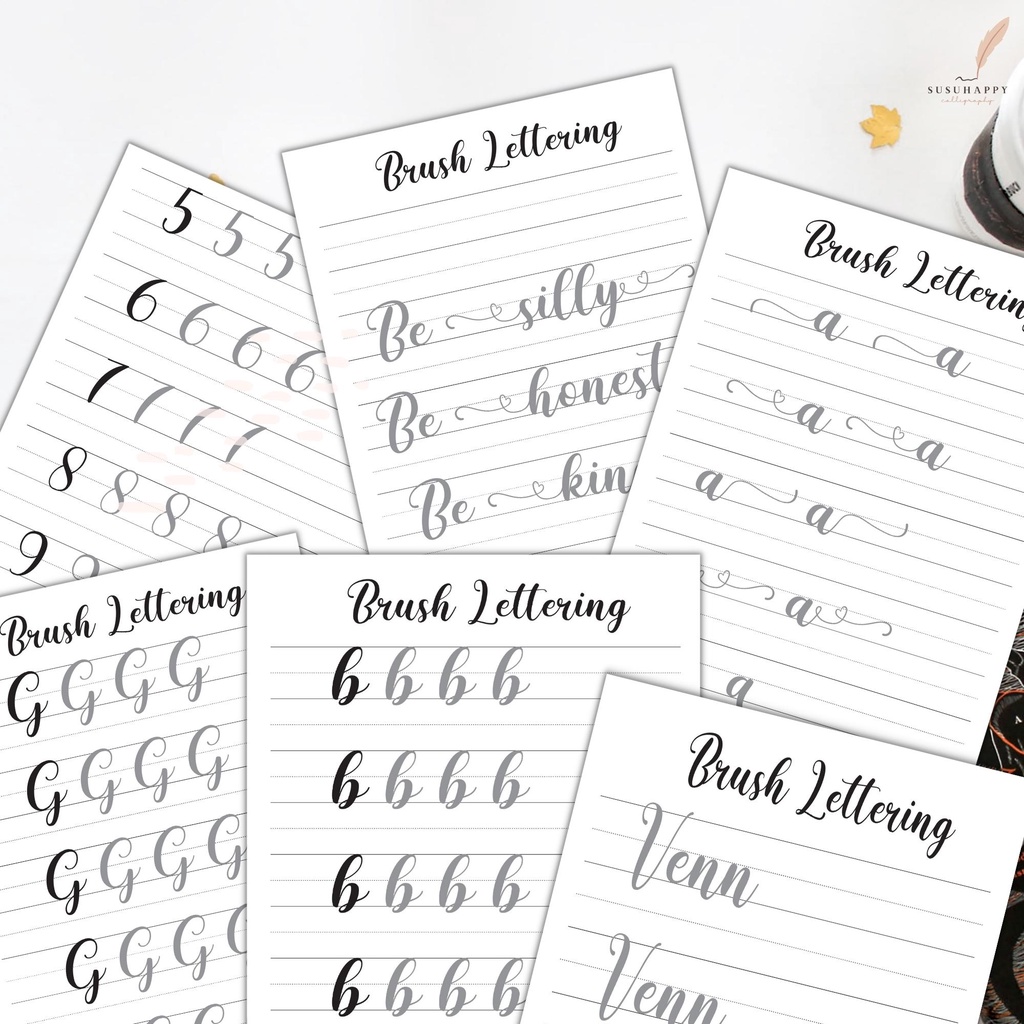 SUSUHAPPY
calligraphy
5 5 5
6 6 6 6
7 7 7 7
8 8 8 8
9 9
Brush Lettering
Be silly
Be honest
Be kin
Brush Lettering
a a
a a
a a
a
a
Brush Lettering
G G G G
G G G G
G G G G
G G G G
Brush Lettering
b b b b
b b b b
b b b b
b b b b
Brush Lettering
Venn
Venn